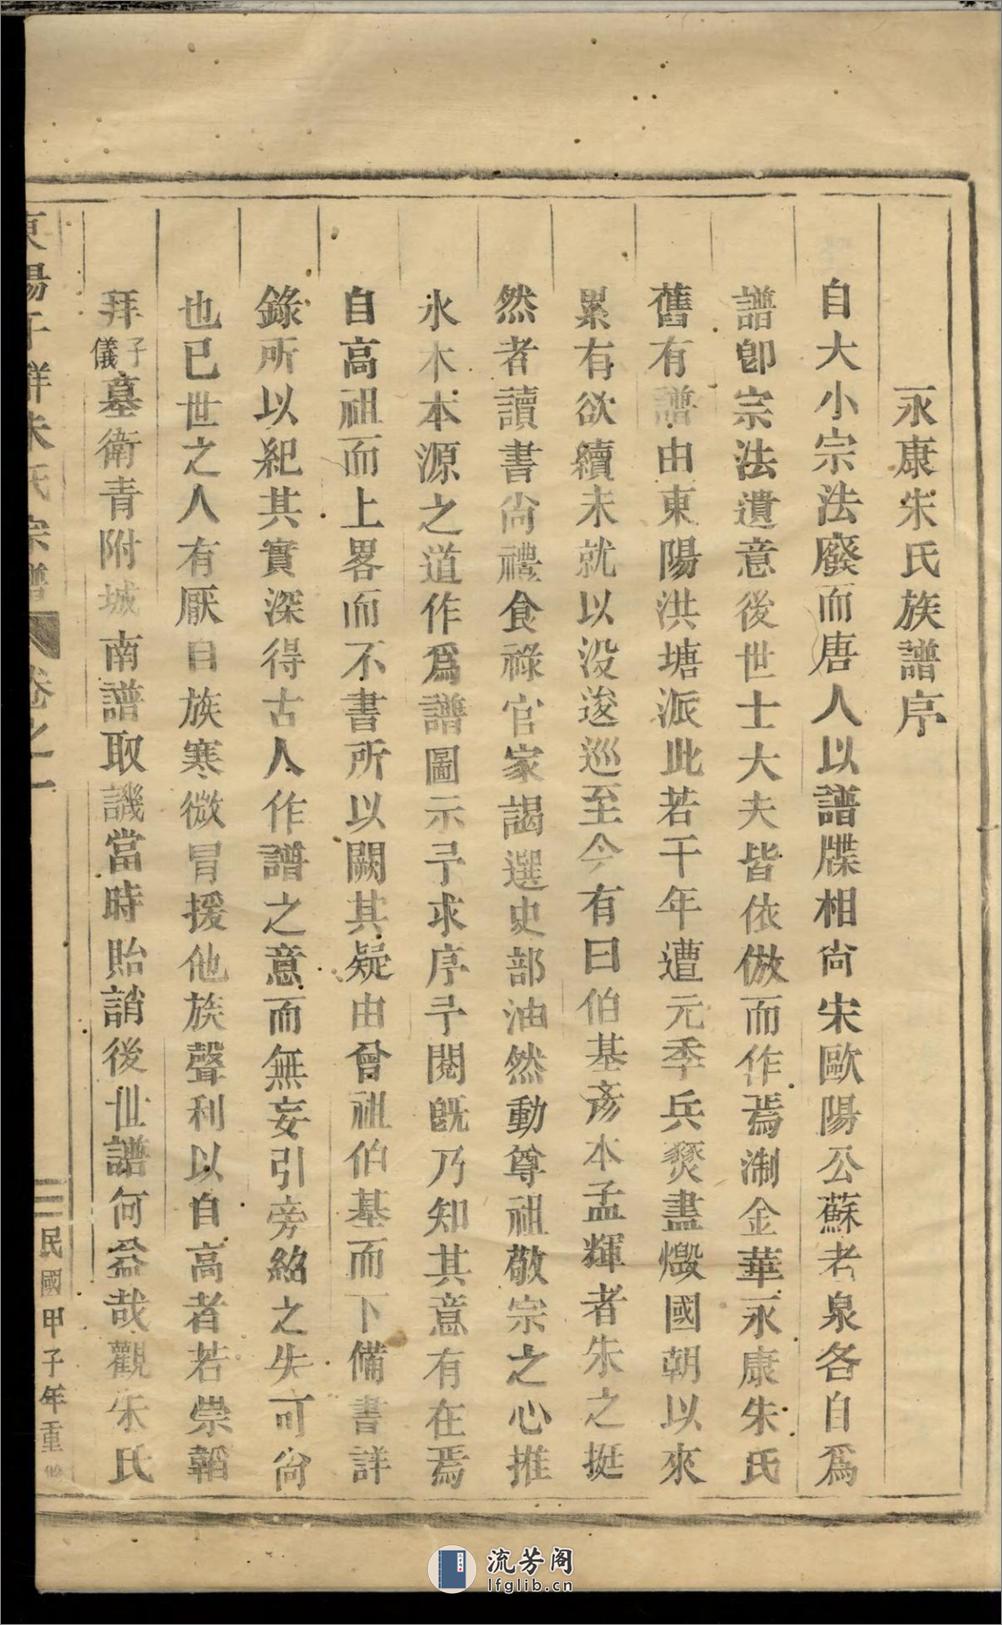 永康朱氏族譜序
自大小宗法廢而唐人以譜牒相尙宋歐陽公蘇老泉各自爲
譜卽宗法遺意後世士大夫皆依倣而作焉淛金華永康朱氏
舊有譜由東陽洪塘派此若干年遭元季兵燹盡燬國朝以來
累有欲續未就以没逡巡至今有曰伯基彥本孟輝者朱之挺
然者讀書尙禮食祿官家謁選史部油然動尊祖敬宗之心推
水木本源之道作爲譜圖示予求序予閱旣乃知其意有在焉
自高祖而上畧而不書所以闕其疑由曾祖伯基而下備書詳
錄所以紀其實深得古人作譜之意而無妄引旁紹之失可尙
也已世之人有厭目族寒微冒援他族聲利以自高者若崇韜
拜子儀墓衛青附城南譜取譏當時貽誚後世譜何益哉觀朱氏
東陽下祥朱氏宗譜 卷之一 民國甲子年重修
流芳阁
lfglib.cn